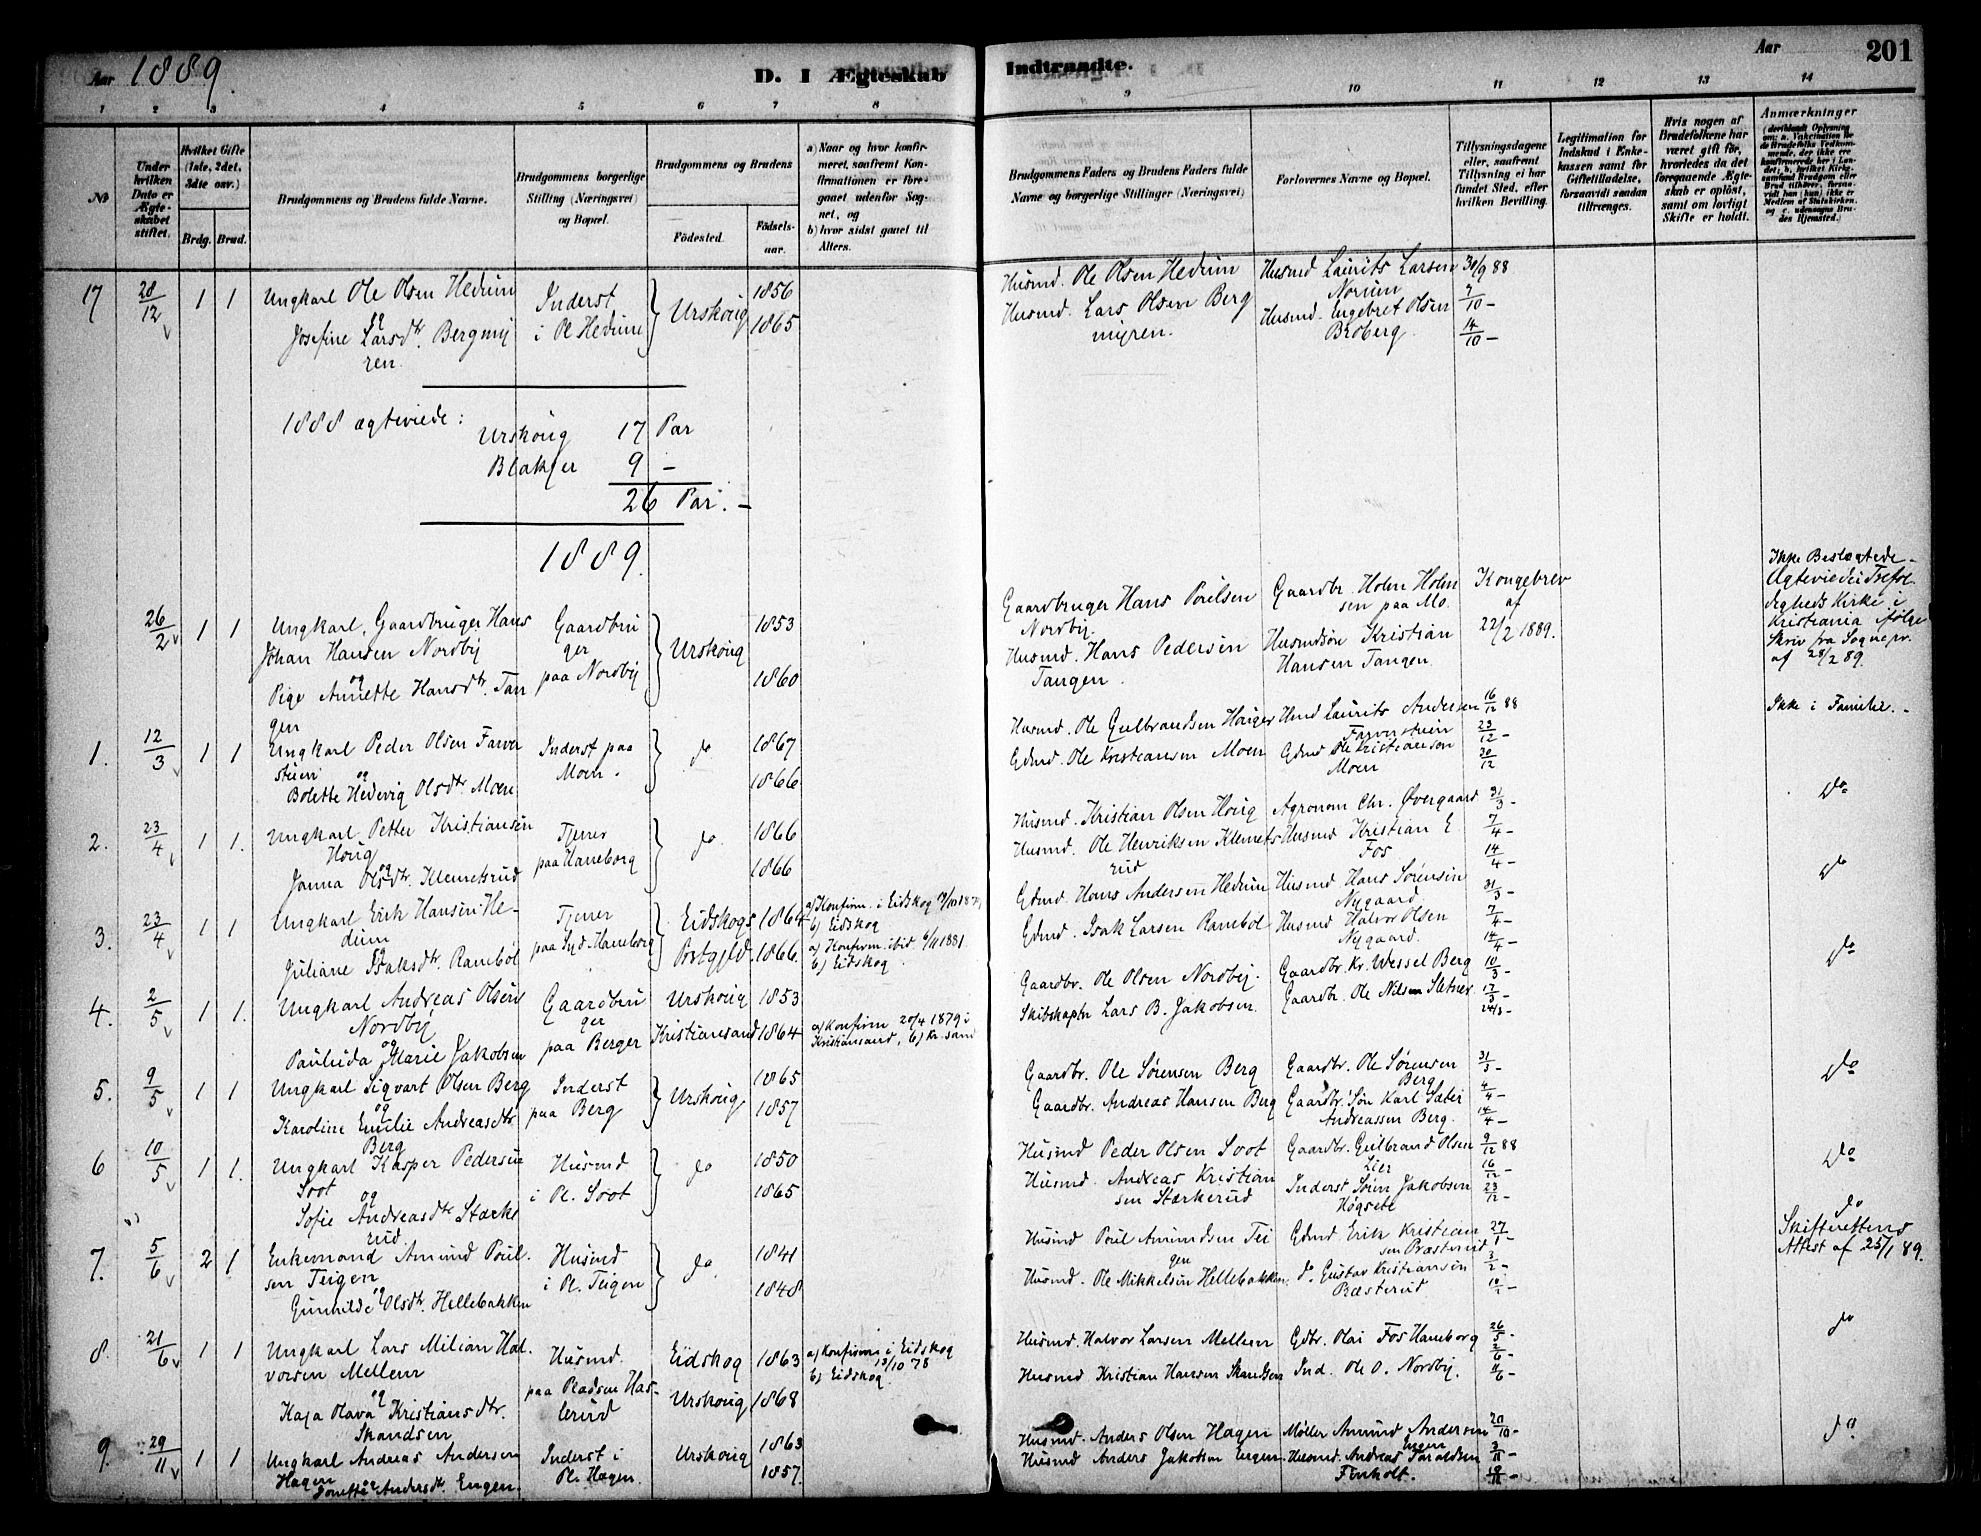 Aar 1889.
D. I Ægteskab
Indtraadte.
Aar
201
1 2 3 4 5 6 7 8
9 10 11 12 13 14
No
Under hvilken Dato er Ægteskabet stiftet.
Hvilket Gifte (1ste, 2det, 3die osv.)
Brdg. Brud.
Brudgommens og Brudens fulde Navne.
Brudgommens borgerlige Stilling (Næringsvei) og Bopæl.
Brudgommens og Brudens
Fødested.
Fødselsaar.
a) Naar og hvor konfirmeret, saafremt Konfirmationen er foregaaet udenfor Sognet, og
b) hvor sidst gaaet til Alters.
Brudgommens Faders og Brudens Faders fulde Navne og borgerlige Stillinger (Næringsvei)
Forlovernes Navne og Bopæl.
Tillysningsdagene eller, saafremt Tillysning ei har fundet Sted, efter hvilken Bevilling.
Legitimation for Indskud i Enkekassen samt for Giftetilladelse, forsaavidt saadan tiltrænges.
Hvis nogen af Brudefolkene har været gift før, hvorledes da det foregaaende Ægteskab er opløst, samt om lovligt Skifte er holdt.
Anmærkninger
17 28/12 1 1 Ungkarl Ole Olsen Hedum
og
Josefine Larsdtr. Bergmy
ren.
Inderst
i Pl Hedum
Urskoug
1856
1865
Husmd. Ole Olsen Hedum
Husmd. Lars Olsen Berg
myren.
Husmd Laurits Larsen
Norum
Husmd. Engebret Olsen
Broberg.
30/9 88
7/10 -
14/10 -
1888 ægteviede:
Urskoug 17 Par
Blakjer 9 -
26 Par. -
1889.
26/2 1 1 Ungkarl, Gaardbruger Hans
Johan Hansen Nordby
og
Pige Annette Hansdtr. Tan
gen
Gaardbru
ger
paa Nordby
Urskoug
1853
1860
Gaardbruger Hans Poulsen
Nordby.
Husmd. Hans Pedersen
Tangen.
Gaardbr. Holm Holm
sen paa Mo.
Husmdsøn Kristian
Hansen Tangen.
Kongebrev
af
22/2 1889.
Ikke Beslægtede -
Ægteviede i Trefol
digheds Kirke i
Kristiania ifølge
Skriv fra Sognepr.
af 28/2 89.
1. 12/3 1 1 Ungkarl Peder Olsen Farver
stuen
og
Bolette Hedevig Olsdtr Moen
Inderst paa
Moen.
do
1867
1866
Husmd. Ole Gulbrandsen Houger
Gdmd. Ole Kristiansen Moen
Hmd Laurits Andersen
Farverstuen
Gdmd Ole Kristiansen
Moen
16/12 88
23/12 -
30/12
Ikke i Familie. -
2. 23/4 1 1. Ungkarl Petter Kristiansen
Houg
og
Janna Olsdtr. Klemetsrud
Tjener
paa Haneborg
do.
1866
1866
Husmd. Kristian Olsen Houg
Husmd. Ole Henriksen Klemets
rud
Agronom Chr. Øvergaard
Husmd Kristian E
Fos
31/3 -
7/4 -
14/4 -
Do
3. 23/4 1 1 Ungkarl Erik Hansen He-
dum
og
Juliane Isaksdtr. Rambøl
Tjener
paa Syd-Haneborg
Eidskogs
Præstgjeld.
1864
1866.
b) Eidskog
a) Konfirm. ibid 6/11 1881.
b) Eidskog
Gdmd. Hans Andersen Hedum
Gdmd. Isak Larsen Rambøl
Husmd Hans Sørensen
Nygaard
Husmd Halvor Olsen
Nygaard.
31/3 -
7/4 -
14/4 -
Do
4. 2/5 1 1. Ungkarl Andreas Olsen
Nordby
og
Paulida Marie Jakobsen
Gaardbru
ger
paa Berger
Urskoug
Kristiansand
1853
1864
a) Konfirm 20/4 1879 i
Kristiansand, b) Kr.sand
Gaardbr. Ole Olsen Nordby.
Skibskaptn Lars B. Jakobsen.
Gaardbr. Kr. Wessel Berg
Gaardbr. Ole Nilsen Sletner
10/3 -
17/3 -
24/3 -
Do
5. 9/5 1 1 Ungkarl Sigvart Olsen Berg
og
Karoline Emilie Andreasdtr.
Berg
Inderst
paa Berg
Urskoug
1865
1857
Gaardbr. Ole Sørensen Berg
Gaardbr. Andreas Hansen Berg
Gaardbr. Ole Sørensen
Berg
Gaardbr. Søn Karl Sæter
Andreassen Berg.
31/3 -
4/4 -
14/4 -
Do
6 10/5 1 1. Ungkarl Kasper Pedersen
Soot
og
Sofie Andreasdtr Stærke
rud
Husmd
i Pl. Soot
do
1850
1865
Husmd Peder Olsen Soot
Husmd. Andreas Kristian
sen Stærkerud
Gaardbr. Gulbrand Olsen
Lier
Inderst Søren Jakobsen
Høgsete
9/12 88
16/12 -
23/12 -
Do
7. 5/6 2 1 Enkemand Amund Poul.
sen Teigen
og
Gunhilde Olsdtr. Hellebakken
Husmd
i Pl. Teigen
do.
1841
1848
Husmd Poul Amundsen Tei
gen
Husmd. Ole Mikkelsen Hellebakken
Gdmd Erik Kristian
sen Præsterud
do. Gustav Kristiansen
Præsterud
27/1 -
3/2 -
10/2 -
do
Skifterettens
Attest af 25/1 89.
8. 21/6 1 1 Ungkarl Lars Milian Hal.
vorsen Mellem
og
Kaja Olava Kristiansdtr.
Skandsen
Husmd.
paa Pladsen Has-
lerud
Eidskog
Urskoug
1863
1868
a) Konfirm i Eidskog
13/10 78
b) Eidskog
Husmd. Halvor Larsen Mellem
Husmd Kristian Hansen Skandsen
Gdbr. Olai Fos Haneborg
Ind. Ole O. Nordby.
26/5 -
2/6 -
11/6 -
do
9. 29/11 1 1 Ungkarl Andreas Andersen
Hagen
og
Jonette Andersdtr. Engen.
Inderst i
Pl. Hagen.
Urskoug
1863
1857.
Husmd. Anders Olsen Hagen
Husmd Anders Jakobsen Engen.
Møller Amund Andersen
Engen
Husmd. Andreas Taraldsen
Finholt.
20/10 -
3/11 -
do